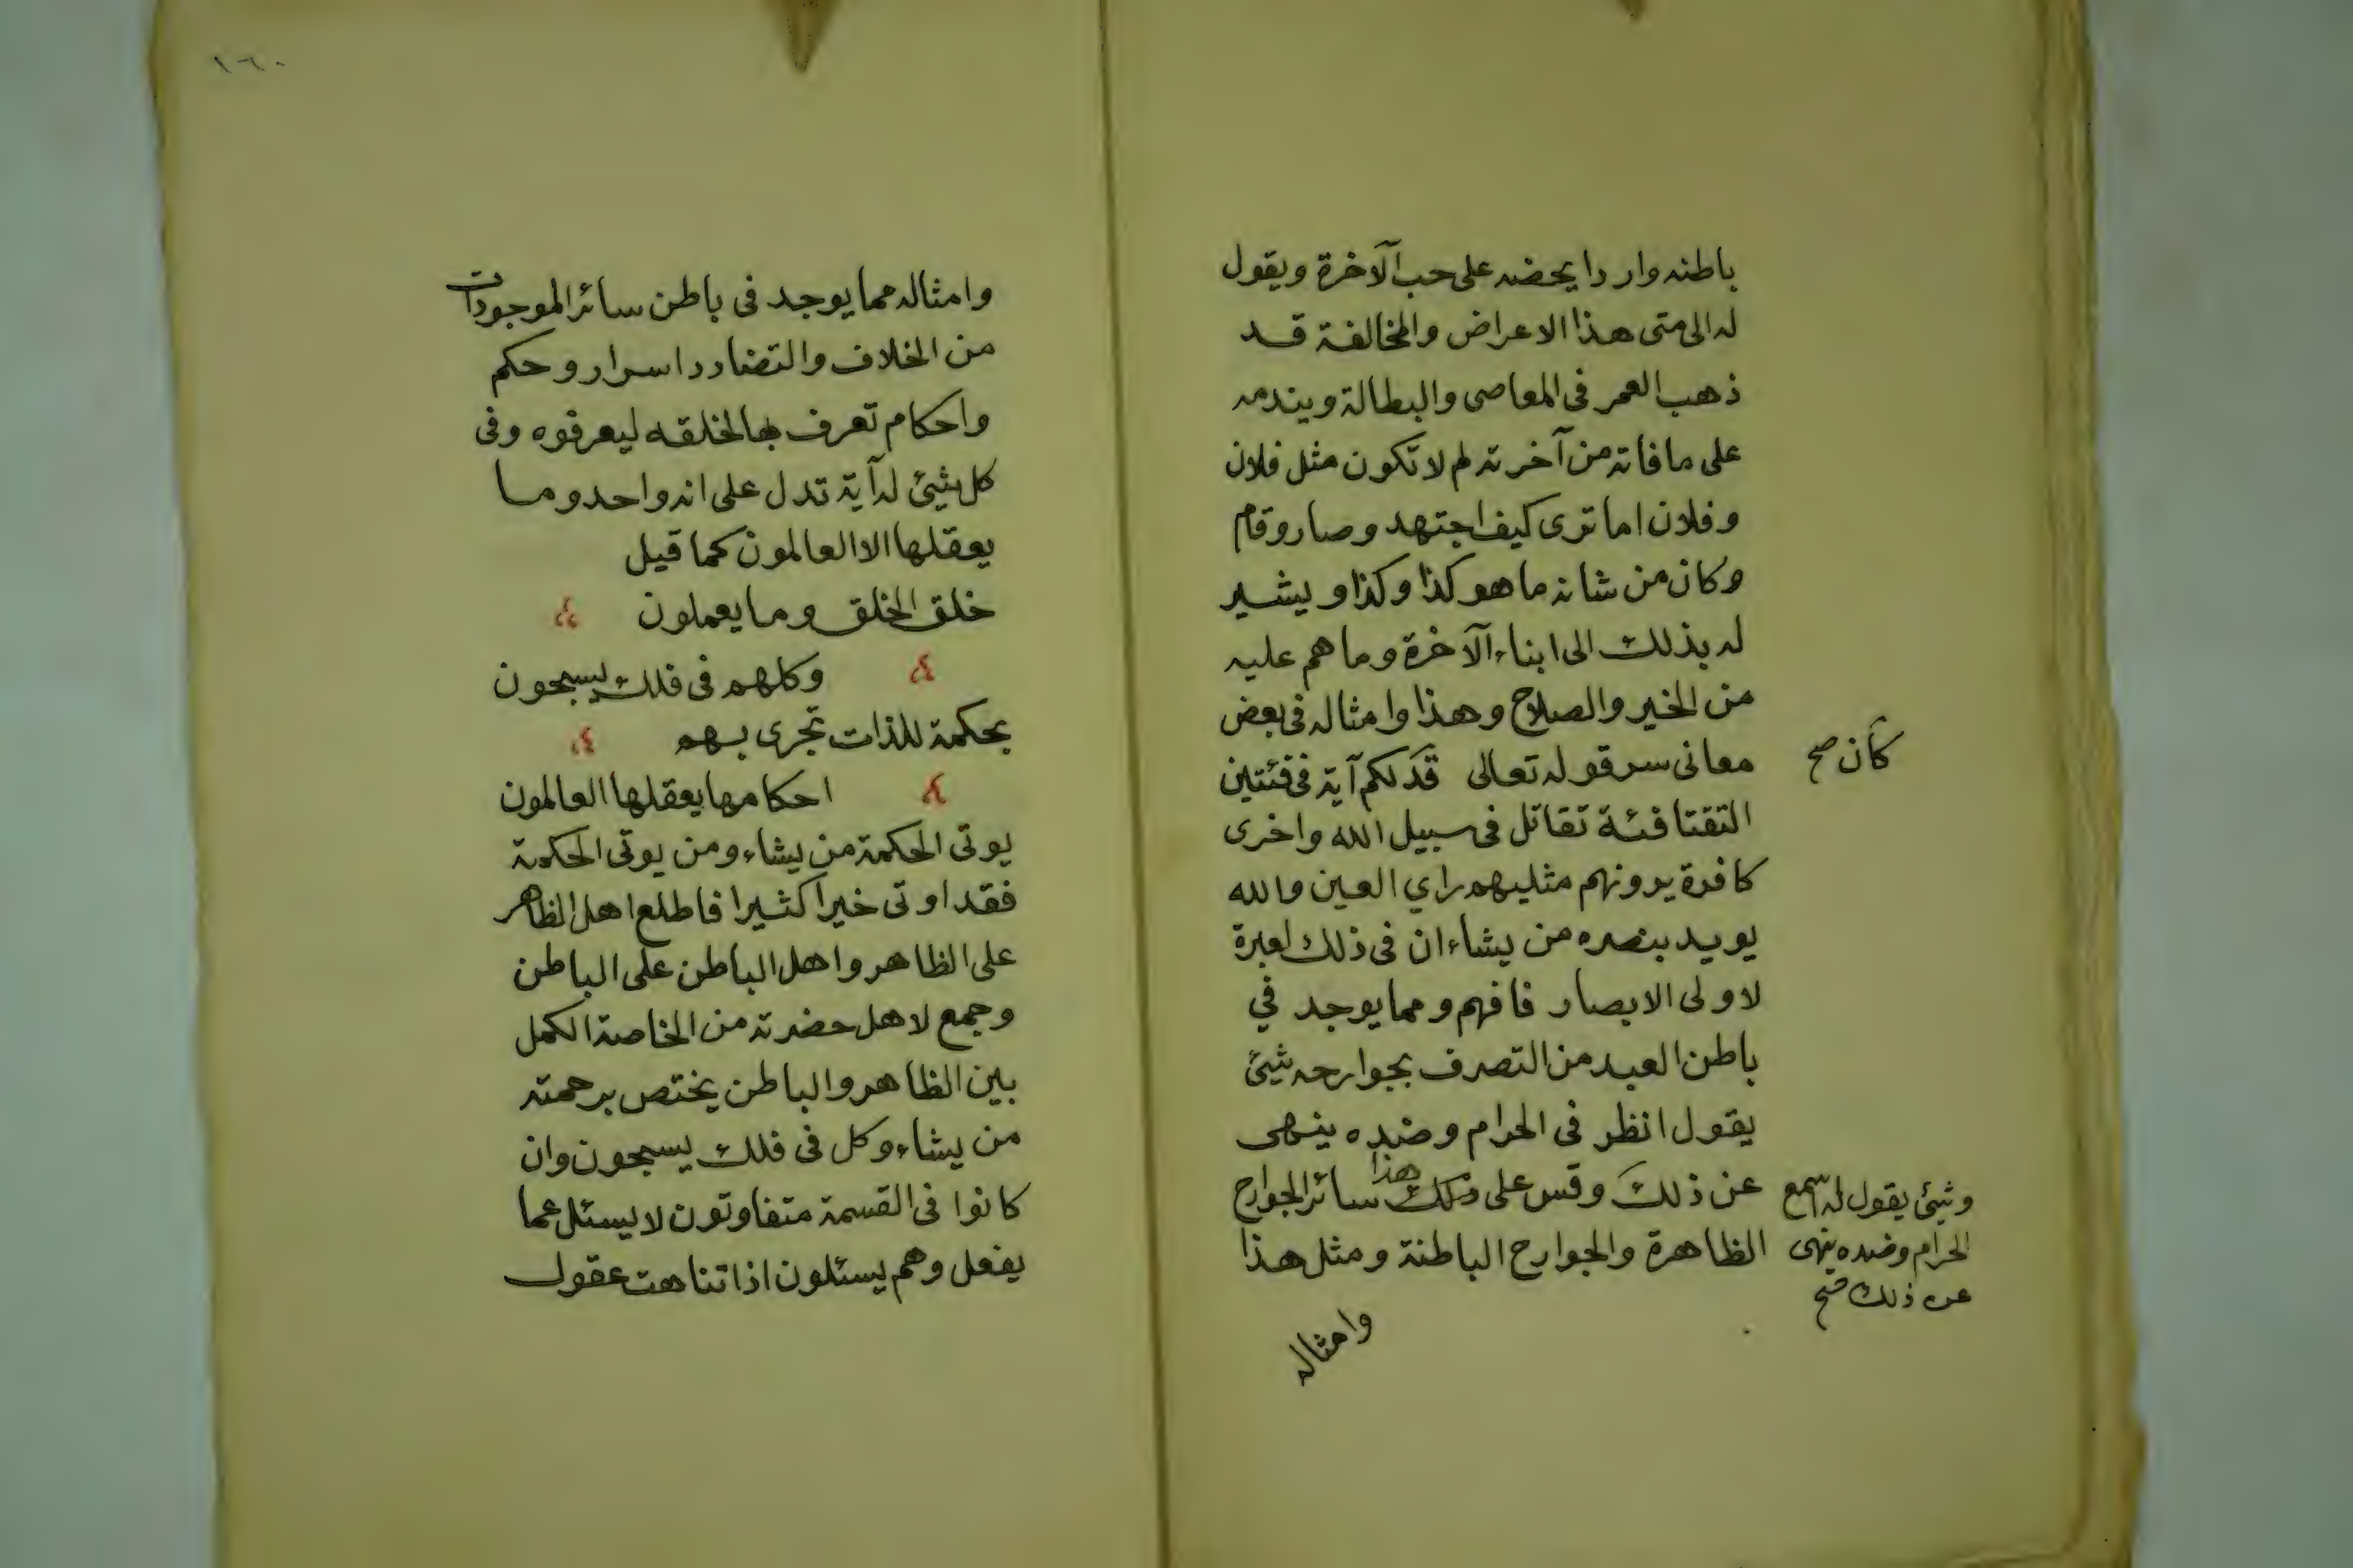 باطنه واردا يحضه على حب الآخرة ويقول
له الى متى هذا الاعراض والمخالفة قد
ذهب العمر في المعاصى والبطالة ويندمه
على ما فاته من آخرته لم لا تكون مثل فلان
وفلان اما ترى كيف اجتهد وصار وقام
وكان من شانه ما هو كذا وكذا ويشير
له بذلك الى ابناء الآخرة وما هم عليه
من الخير والصلاح وهذا وامثاله فى بعض
معانى سر قوله تعالى قد لكم آية فى فئتين
كان صح
التقتا فئة تقاتل فى سبيل الله واخرى
كافرة يرونهم مثليهم راي العين والله
يويد بنصره من يشاء ان فى ذلك لعبرة
لاولى الابصار فافهم ومما يوجد في
باطن العبد من التصرف بجوارحه شيئ
يقول انظر فى الحرام وضده ينهى
عن ذلك وقس على ذلك هذا سائر الجوارح
وشيئ يقول له اسمع
الحرام وضده ينهى
عن ذلك صح
الظاهرة والجوارح الباطنة ومثل هذا
وامثاله
١٦٠
وامثاله مما يوجد فى باطن سائر الموجودات
من الخلاف والتضادد اسرار وحكم
واحكام تعرف بها لخلقه ليعرفوه وفى
كل شيئ له آية تدل على انه واحد وما
يعقلها الا العالمون كما قيل
خلق الخلق وما يعملون
وكلهم فى فلك يسبحون
بحكمة للذات تجرى بهم
احكامها يعقلها العالمون
يوتى الحكمة من يشاء ومن يوتى الحكمة
فقد اوتى خيرا كثيرا فاطلع اهل الظاهر
على الظاهر واهل الباطن على الباطن
وجمع لاهل حضرته من الخاصة الكمل
بين الظاهر والباطن يختص برحمته
من يشاء وكل فى فلك يسبحون وان
كانوا فى القسمة متفاوتون لا يسئل عما
يفعل وهم يسئلون اذا تناهت عقول